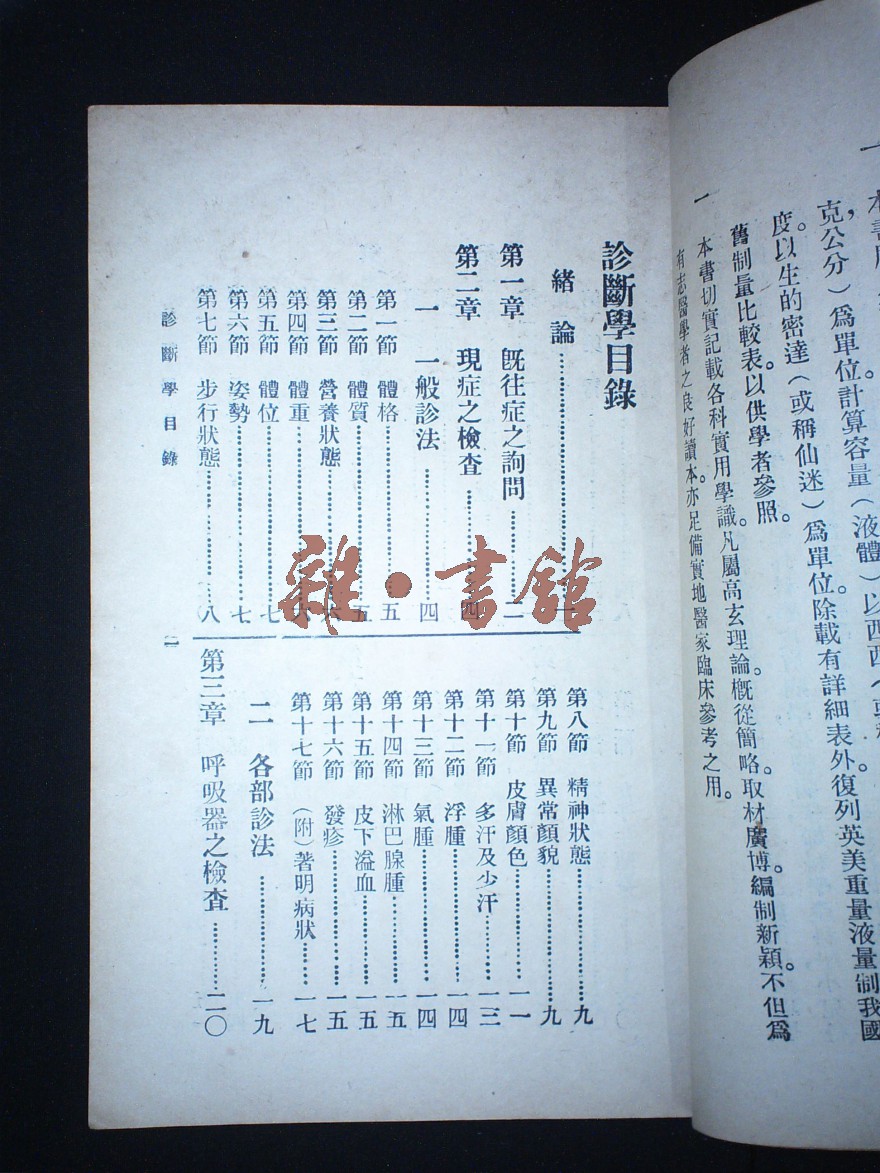 克公分）爲單位計算容量（液體）以西西
度。以生的密達（或稱仙迷）爲單位。除載有詳細表外。復列英美重量液量制我國
舊制量比較表。以供學者參照。
一
本書切實記載各科實用學識。凡屬高玄理論。槪從簡略。取材廣博。編制新穎。不但爲
有志醫學者之良好讀本。亦足備實地醫家臨床參考之用。
診斷學目錄
緒論……一
第一章 旣往症之詢問……二
第二章 現症之檢查……四
一 一般診法……四
第一節 體格……五
第二節 體質……五
第三節 營養狀態……六
第四節 體重……六
第五節 體位……七
第六節 姿勢……七
第七節 步行狀態……八
第八節 精神狀態……九
第九節 異常顏貌……九
第十節 皮膚顏色……一一
第十一節 多汗及少汗……一三
第十二節 浮腫……一四
第十三節 氣腫……一四
第十四節 淋巴腺腫……一五
第十五節 皮下溢血……一五
第十六節 發疹……一五
第十七節 （附）著明病狀……一七
二 各部診法……一九
第三章 呼吸器之檢查……二〇
診斷學目錄
一
雜·書館